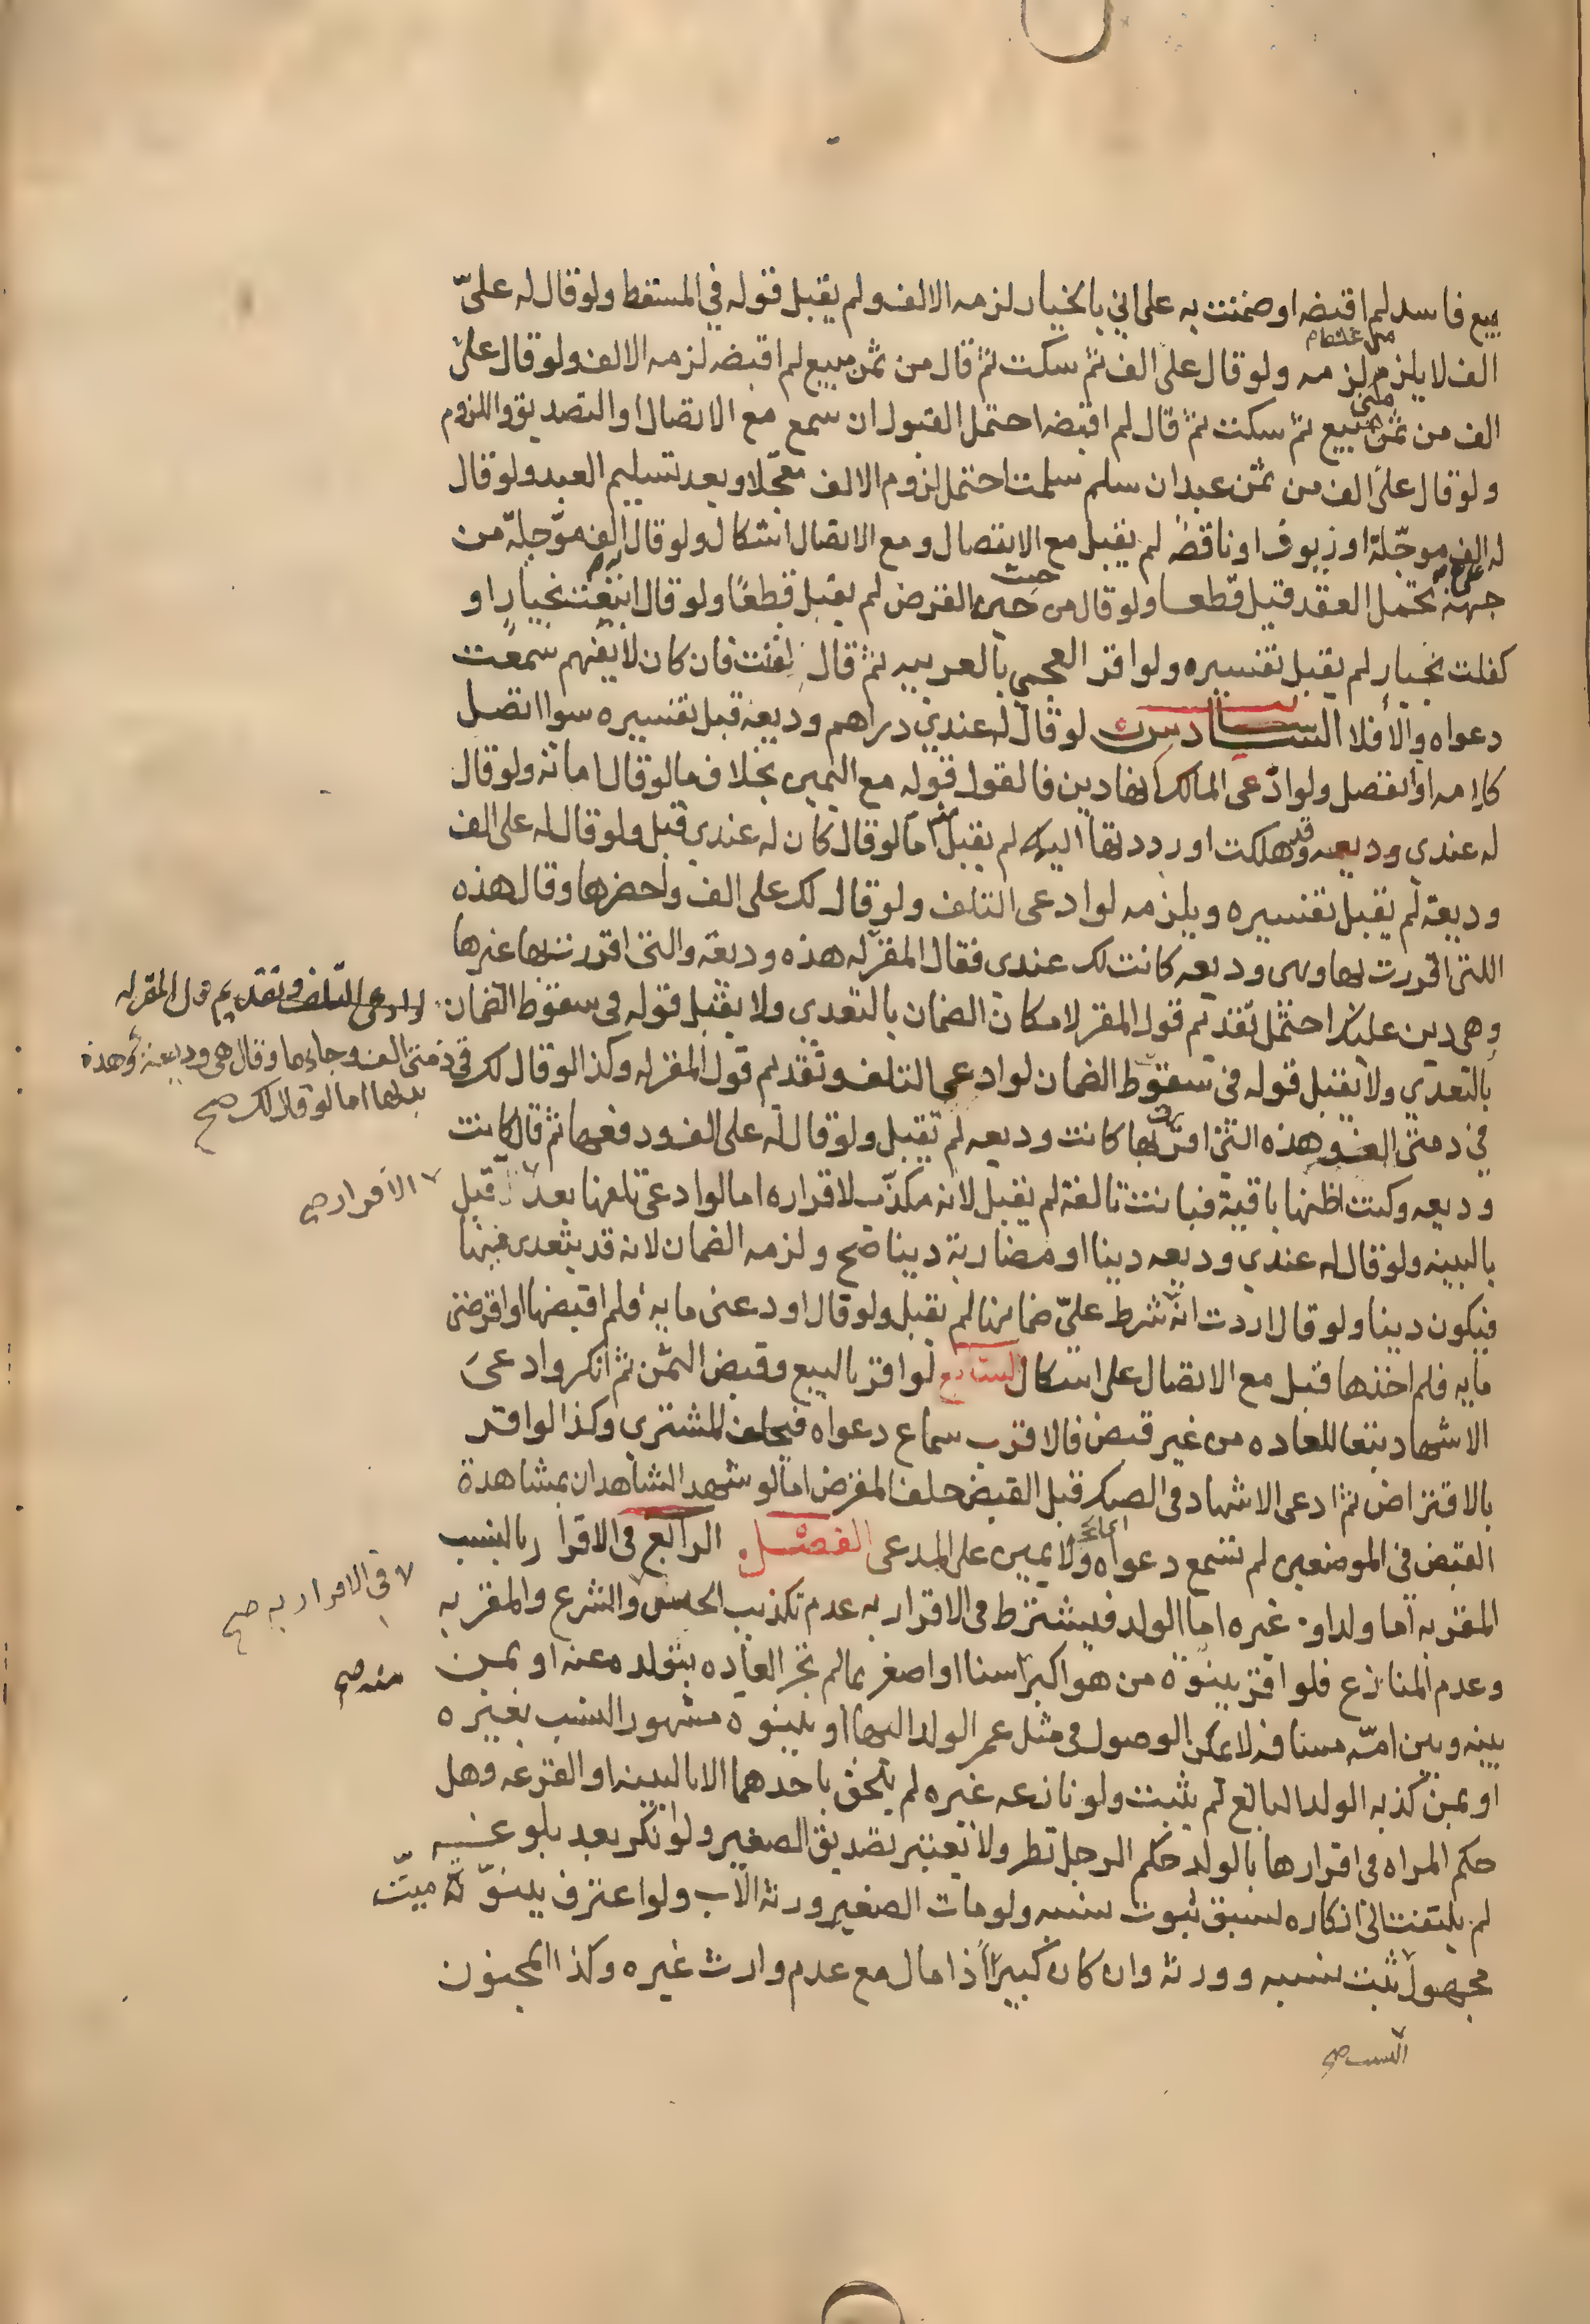 مبيع فاسد لم اقبضه او ضمنت به على اني بالخيار لزمه الالف ولم يقبل قوله في المسقط ولو قال له علىّ
الف لا يلزم لزمه ولو قال على الف ثم سكت ثم قال من ثمن مبيع لم اقبضه لزمه الالف ولو قال على
الف من ثمن مبيع ثم سكت ثم قال لم اقبضه احتمل القبول ان سمع مع الاتصال او التصديق واللزوم
ولو قال على الف من ثمن عبد ان سلم سلمت احتمل لزوم الالف معجّلا وبعد تسليم العبد ولو قال
له الف موجّلة او زيوف او ناقصة لم يقبل مع الانفصال ومع الاتصال اشكال ولو قال الف موّجلة من
جهة تحتمل العقد قبل قطعا ولو قال من حيث القرض لم يقبل قطعًا ولو قال ابتعت بخيار او
كفلت بخيار لم يقبل تفسيره ولو اقر العجمي بالعربيه ثم قال لقنت فان كان لا يفهم سمعت
دعواه والا فلا السادس لو قال له عندي دراهم وديعة قبل تفسيره سوا اتصل
كلامه او انفصل ولو ادّعى المالك انها دين فالقول قوله مع اليمين بخلاف ما لو قال امانة ولو قال
له عندي وديعه وقد هلكت او رددتها اليه لم يقبل اما لو قال كان له عندي قبل ولو قال له على الف
وديعة لم يقبل تفسيره ويلزمه لو ادعى التلف ولو قال لك على الف واحضرها وقال هذه
اللتي اقررت بها وهي وديعه كانت لك عندي فقال المقر له هذه وديعة والتي اقررت بها غيرها
وهي دين عليك احتمل تقديم قول المقر لامكان الضمان بالتعدي ولا يقبل قوله في سقوط الضمان لو ادعى التلف وتقديم قول المقر له
بالتعدّي ولا يقبل قوله في سقوط الضمان لو ادعي التلف وتقديم قول المقر له وكذا لو قال لك في ذمتي الف وجاء بها وقال هي وديعة وهذه
بدلها اما لو قال لك صح
في ذمتي الف وهذه التي اقررت بها كانت وديعه لم تقبل ولو قال له على الف ودفعها ثم قال كانت
وديعه وكنت اظنها باقية فبانت تالفة لم يقبل لانه مكذّب لاقراره اما لو ادعى تلفها بعد قبل
الاقرار صح
بالبينه ولو قال له عندي وديعه دينا او مضاربة دينا صح ولزمه الضمان لانه قد يتعدى فيها
فيكون دينا ولو قال اردت انه شرط عليّ ضمانها لم يقبل ولو قال اودعنى مايه فلم اقبضها او اقرضنى
مايه فلم اخذها قبل مع الاتصال على اشكال السابع لو اقر بالبيع وقبض الثمن ثم انكر وادعى
الاشهاد تبعا للعاده من غير قبض فالاقرب سماع دعواه فيحلف المشتري وكذا لو اقر
بالاقتراض ثم ادعى الاشهاد في الصك قبل القبض حلف المقرض اما لو شهد الشاهدان بمشاهدة
القبض في الموضعين لم تسمع دعواه ولا يمين على المدعى الفصل الرابع في الاقرار بالنسب
المقر به اما ولد او غيره اما الولد فيشترط في الاقرار به عدم تكذيب الحس والشرع والمقر به
في الاقرار به صح
وعدم المنازع فلو اقر ببنوّة من هو اكبر سنا او اصغر بما لم تجر العاده بتولده عنه او بمن
منه صح
بينه وبين امّه مسافه لا يمكن الوصول في مثل عمر الولد اليها او ببنوة مشهور النسب بغيره
او بمن كذبه الولد البالغ لم يثبت ولو نازعه غيره لم يلحق باحدهما الا بالبينه او القرعه وهل
حكم المراه في اقرارها بالولد حكم الرجل نظر ولا تعتبر تصديق الصغير ولو انكر بعد بلوغه
لم يلتفت الى انكاره لسبق ثبوت نسبه ولو مات الصغير ورثه الاب ولو اعترف ببنوّة ميّت
مجهول ثبت نسبه وورثه وان كان كبيرًا ذا مال مع عدم وارث غيره وكذا المجنون
النسب صح